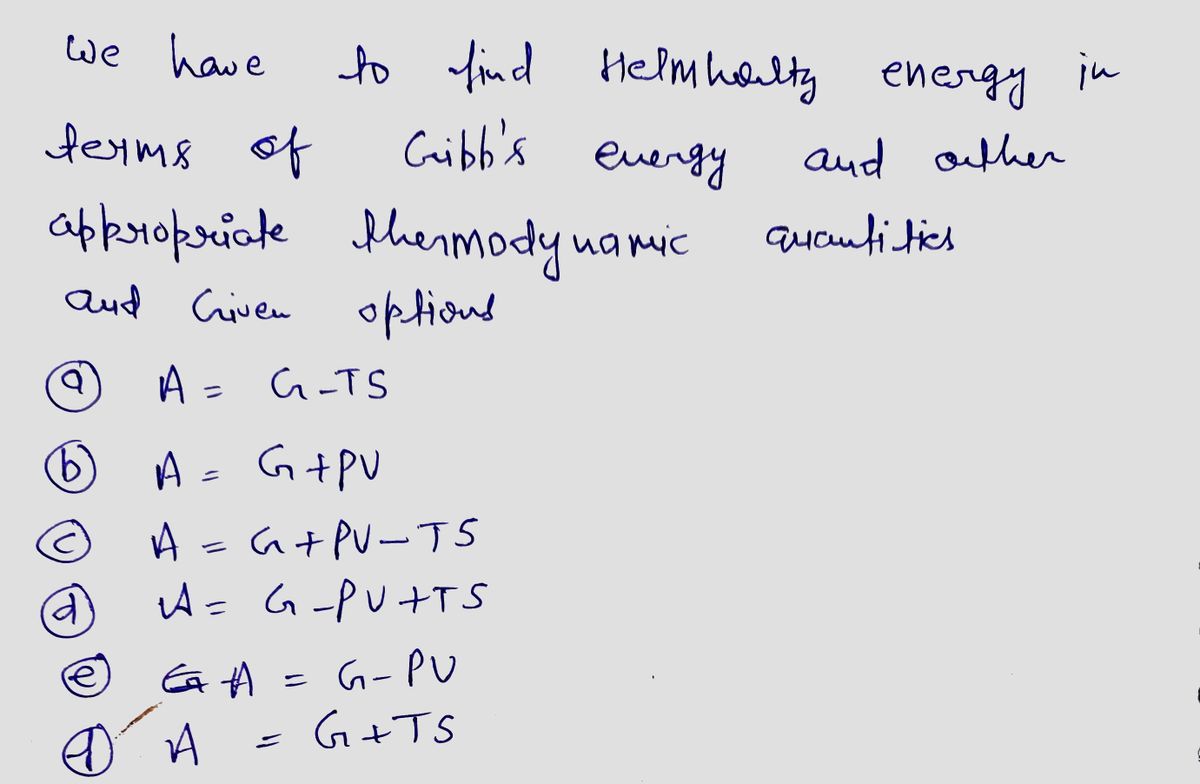 We have to find Helmholtz energy in
terms of Gibb's energy and other
appropriate thermodynamic quantities
and Given options
(a) A = G-TS
(b) A = G+PV
(c) A = G+PV-TS
(d) A = G-PV+TS
(e) A = G-PV
(f) A = G+TS